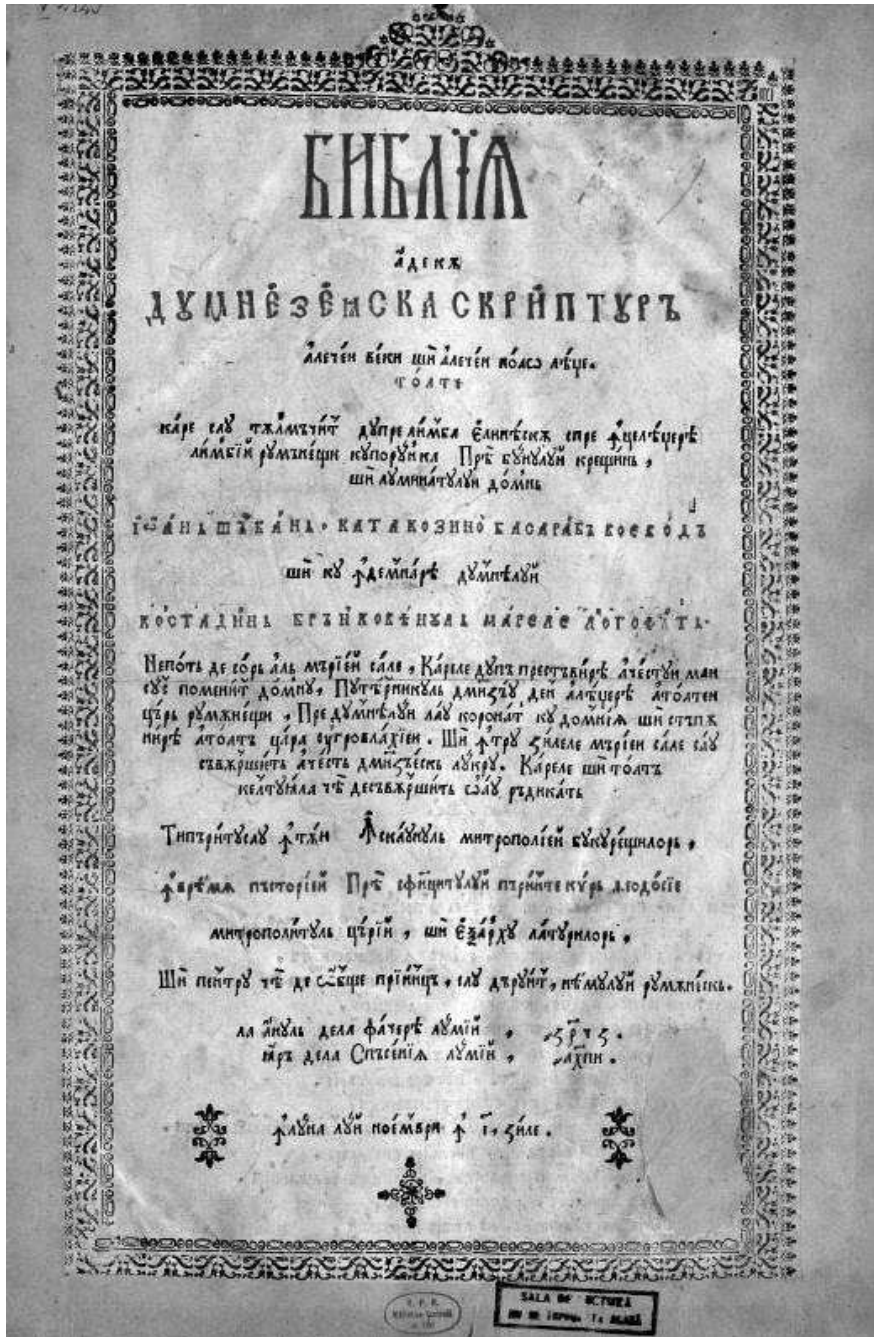 БИБЛЇѦ
а҆декѫ
ДꙊМНЕ́ЗЕ́ꙖСКА СКРИ́ПТꙊРЪ
а҆лечеи веки ши а҆лечеи но́аѡ лѣџе.
то́ате
ка́ре сꙋ тѫлмъчи́т дꙋпре ли́мба є҆линѣскѫ спре ꙟ҆целѣџерѣ
ли́мбїй рꙋмѫнещи кꙋпорꙋнка Прѣ бꙋ́нꙋлꙋй креѱи́нь,
ши лꙋмина́тꙋлꙋи до́мнь
І҆Ѡа́нь Шꙋ҆рба́нь· КАТАКОЗИНО̀ БАСАРА́БЪ ВОЕВО́ДЪ
ши кꙋ ꙟ҆демна́рѣ дꙋмнѣлꙋй
КОСТАДИ́НЬ БРЪНКОВѢНꙊЛЬ МА́РЕЛЕ ЛОГОФѢТЬ·
Непо́ть де со́рь а҆ль мърїе́й са́ле, Ка́реле дꙋпъ престъви́рѣ аче́стꙋи маи
сꙋс помени́т до́мнꙋ, Пꙋтѣ́рникꙋль дмнꙁъꙋ деи а҆лѣџерѣ ато́атеи
цъ́рь рꙋмѫнещи, Пре дꙋмнѣлꙋи лаꙋ корона́т кꙋ домнїѧ ши стъпѫ
ни́рѣ ато́атъ ца́ра оугровла́хїеи. Ши ꙟ҆трꙋ ꙁи́леле мърїеи са́ле сау
съвѫрши́ть аче́сть дмнꙁъе́скь лꙋ́крꙋ. Ка́реле ши то́атъ
келтꙋѧла чѣ десъвѫрши́ть ѡ҆аꙋ ръдика́ть
Типъри́тꙋсаꙋ ꙟ҆тѫи Ꙟ҆ска́ꙋнꙋль митрополїе́й бꙋкꙋре́щилорь,
ꙟ҆врѣмѧ пъсторїей Прѣ сфи́нцитꙋлꙋй пъри́нте кѵрь Ѳеодо́сїе
митрополи́тꙋль цъ́рїй, ши є҆ѯа́рхꙋ ла́тꙋрилорь,
Ши пе́нтрꙋ чѣ де ѡ҆́бще прїи́нцъ, саꙋ дърꙋи́т, нѣ́мꙋлꙋй рꙋмѫне́скь.
ла а́нꙋль дела фа́черѣ лꙋ́мїй, ҂ꙁрчꙁ.
ꙗ҆ръ дела Спъсе́нїѧ лꙋ́мїй, ҂ахпи.
ꙟ҆лꙋ́на лꙋй ное́мври ꙟ҆ і҃, ꙁи́ле.
SALA DE